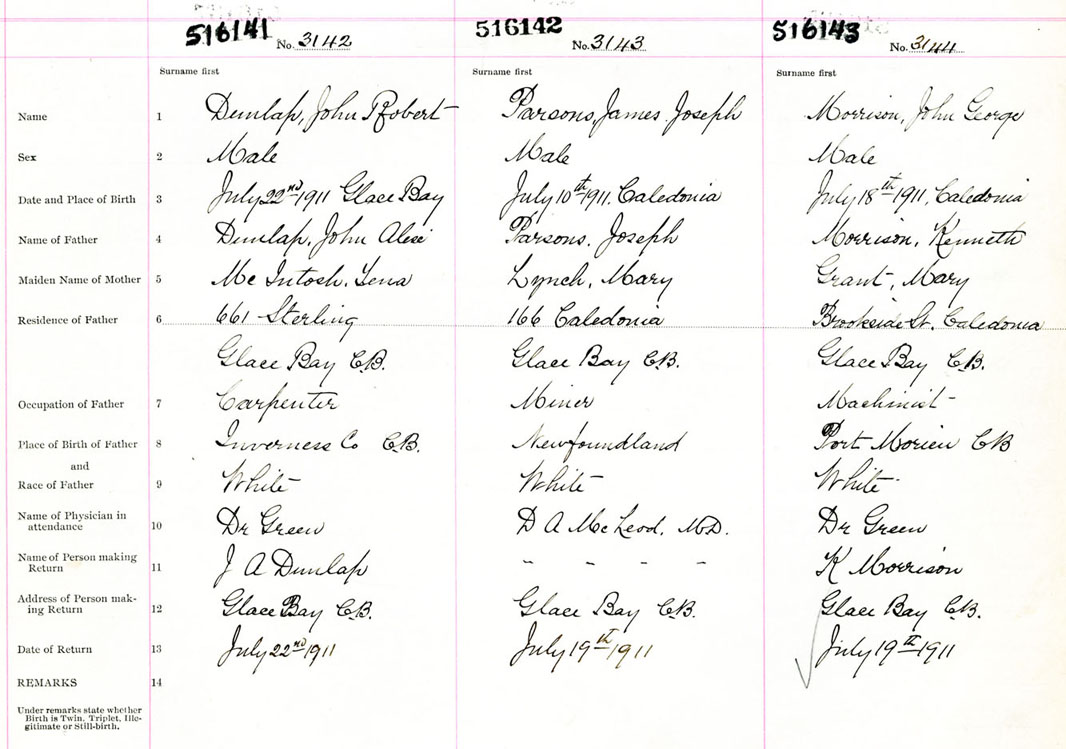 516141 No. 3142 516142 No. 3143 516143 No. 3144
Surname first Surname first Surname first
Name 1 Dunlap, John Robert Parsons, James Joseph Morrison, John George
Sex 2 Male Male Male
Date and Place of Birth 3 July 22nd 1911 Glace Bay July 10th 1911, Caledonia July 18th 1911, Caledonia
Name of Father 4 Dunlap, John Parsons, Joseph Morrison, Kenneth
Maiden Name of Mother 5 Mc Intosh, Lena Lynch, Mary Grant, Mary
Residence of Father 6 661 Sterling 166 Caledonia Brookside St. Caledonia
Glace Bay C.B. Glace Bay C.B. Glace Bay C.B.
Occupation of Father 7 Carpenter Miner Machinist
Place of Birth of Father 8 Inverness Co C.B. Newfoundland Port Morien CB
and
Race of Father 9 White White White
Name of Physician in
attendance 10 Dr Green D A McLeod, M.D. Dr Green
Name of Person making
Return 11 J A Dunlap - - - - K Morrison
Address of Person mak-
ing Return 12 Glace Bay C.B. Glace Bay C.B. Glace Bay C.B.
Date of Return 13 July 22nd 1911 July 19th 1911 July 19th 1911
REMARKS 14
Under remarks state whether
Birth is Twin, Triplet, Ille-
gitimate or Still-birth.